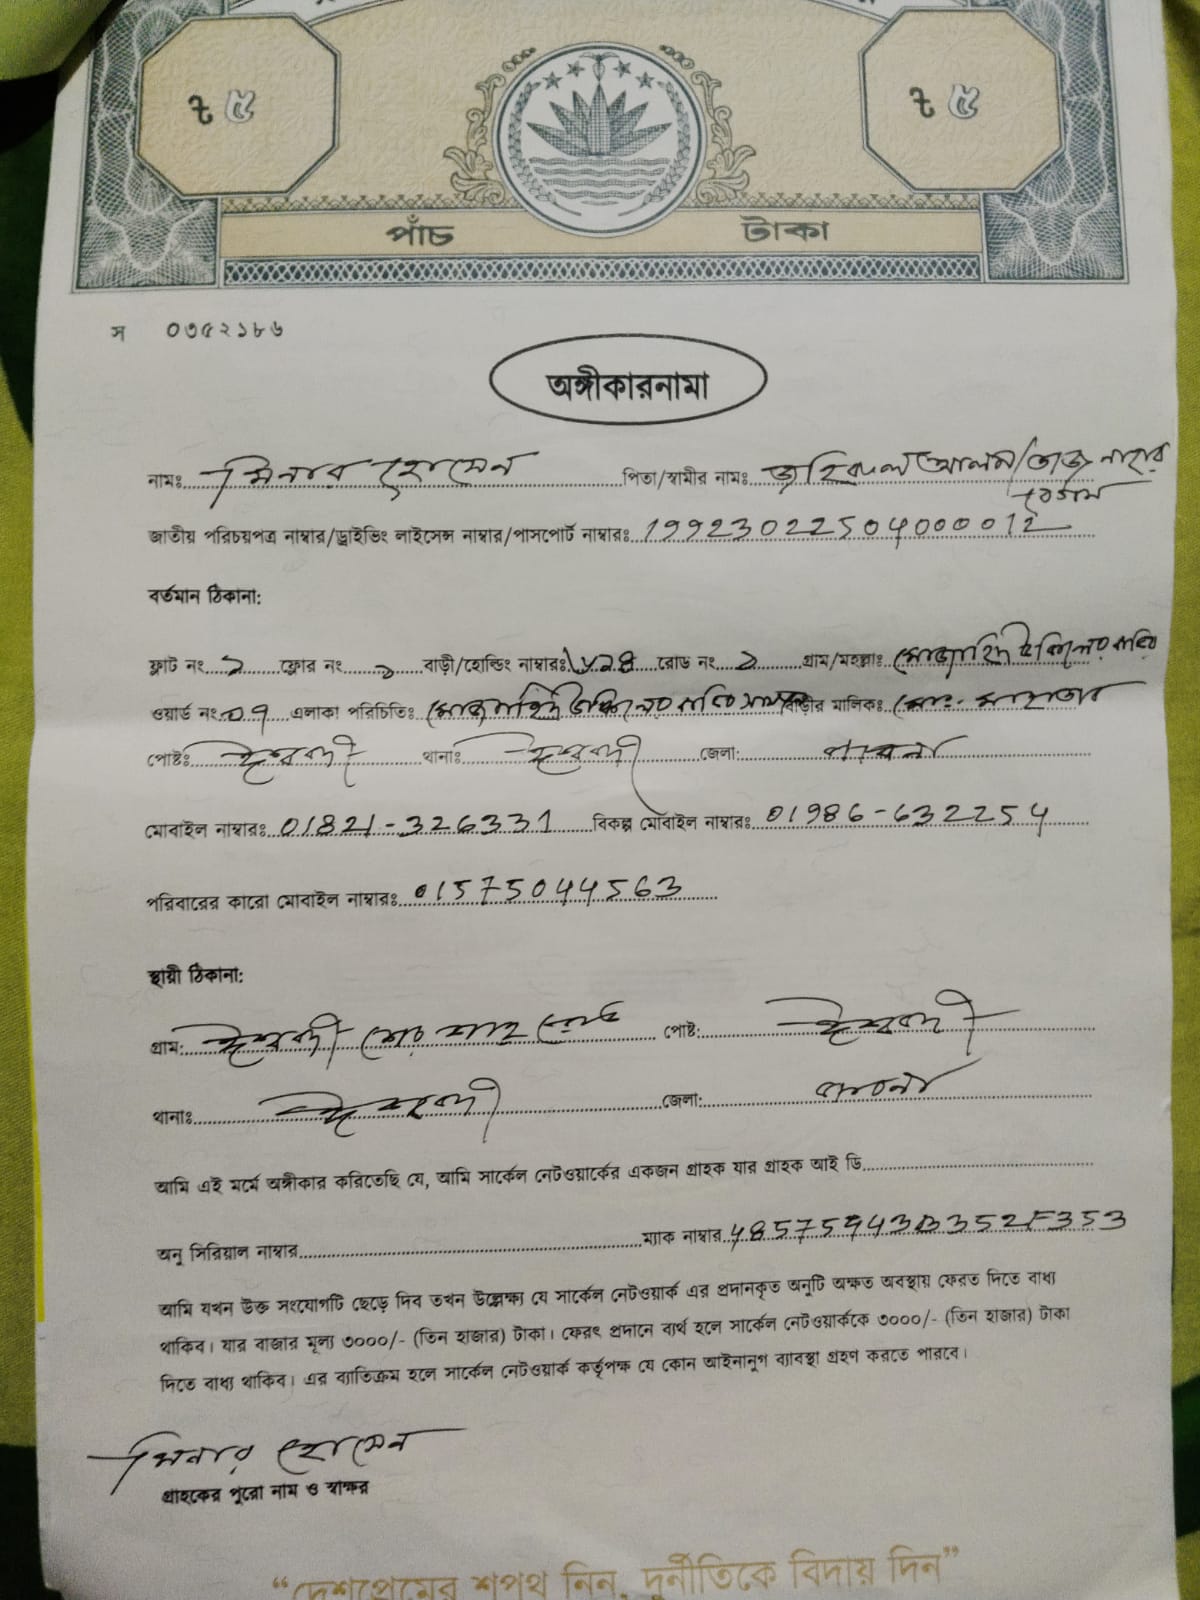 ৳ ৫ ৳ ৫
পাঁচ টাকা
স ০৩৫২১৮৬
অঙ্গীকারনামা
নামঃ মিনার হোসেন পিতা/স্বামীর নামঃ আলম/তাজ নাহার
বেগম
জাতীয় পরিচয়পত্র নাম্বার/ড্রাইভিং লাইসেন্স নাম্বার/পাসপোর্ট নাম্বারঃ 19923022504000012
বর্তমান ঠিকানা:
ফ্লাট নং ফ্লোর নং বাড়ী/হোল্ডিং নাম্বারঃ রোড নং গ্রাম/মহল্লাঃ
ওয়ার্ড নং ০৭ এলাকা পরিচিতিঃ বাড়ীর মালিকঃ মোঃ
পোষ্টঃ ঈশ্বরদী থানাঃ ঈশ্বরদী জেলা: পাবনা
মোবাইল নাম্বারঃ 01821-326331 বিকল্প মোবাইল নাম্বারঃ 01986-632254
পরিবারের কারো মোবাইল নাম্বারঃ 01575044563
স্থায়ী ঠিকানা:
গ্রাম: ঈশ্বরদী শের শাহ রোড পোষ্ট: ঈশ্বরদী
থানাঃ ঈশ্বরদী জেলা: পাবনা
আমি এই মর্মে অঙ্গীকার করিতেছি যে, আমি সার্কেল নেটওয়ার্কের একজন গ্রাহক যার গ্রাহক আই ডি
অনু সিরিয়াল নাম্বার ম্যাক নাম্বার
আমি যখন উক্ত সংযোগটি ছেড়ে দিব তখন উল্লেক্ষ্য যে সার্কেল নেটওয়ার্ক এর প্রদানকৃত অনুটি অক্ষত অবস্থায় ফেরত দিতে বাধ্য
থাকিব। যার বাজার মূল্য ৩০০০/- (তিন হাজার) টাকা। ফেরৎ প্রদানে ব্যর্থ হলে সার্কেল নেটওয়ার্ককে ৩০০০/- (তিন হাজার) টাকা
দিতে বাধ্য থাকিব। এর ব্যতিক্রম হলে সার্কেল নেটওয়ার্ক কর্তৃপক্ষ যে কোন আইনানুগ ব্যাবস্থা গ্রহণ করতে পারবে।
মিনার হোসেন
গ্রাহকের পুরো নাম ও স্বাক্ষর
“দেশপ্রেমের শপথ নিন, দুর্নীতিকে বিদায় দিন”